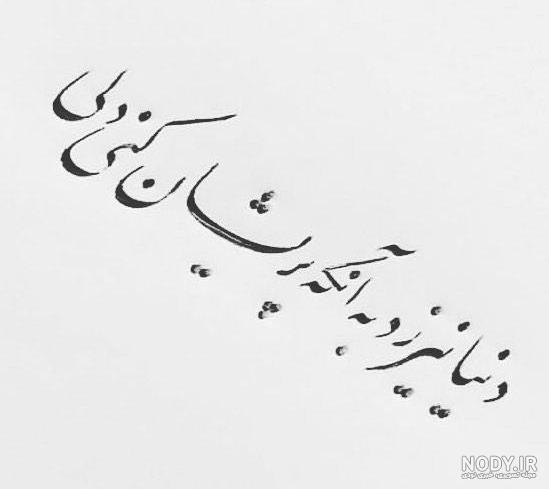 دنیا نیرزد به آنکه پریشان کنی دلی
NODY.IR